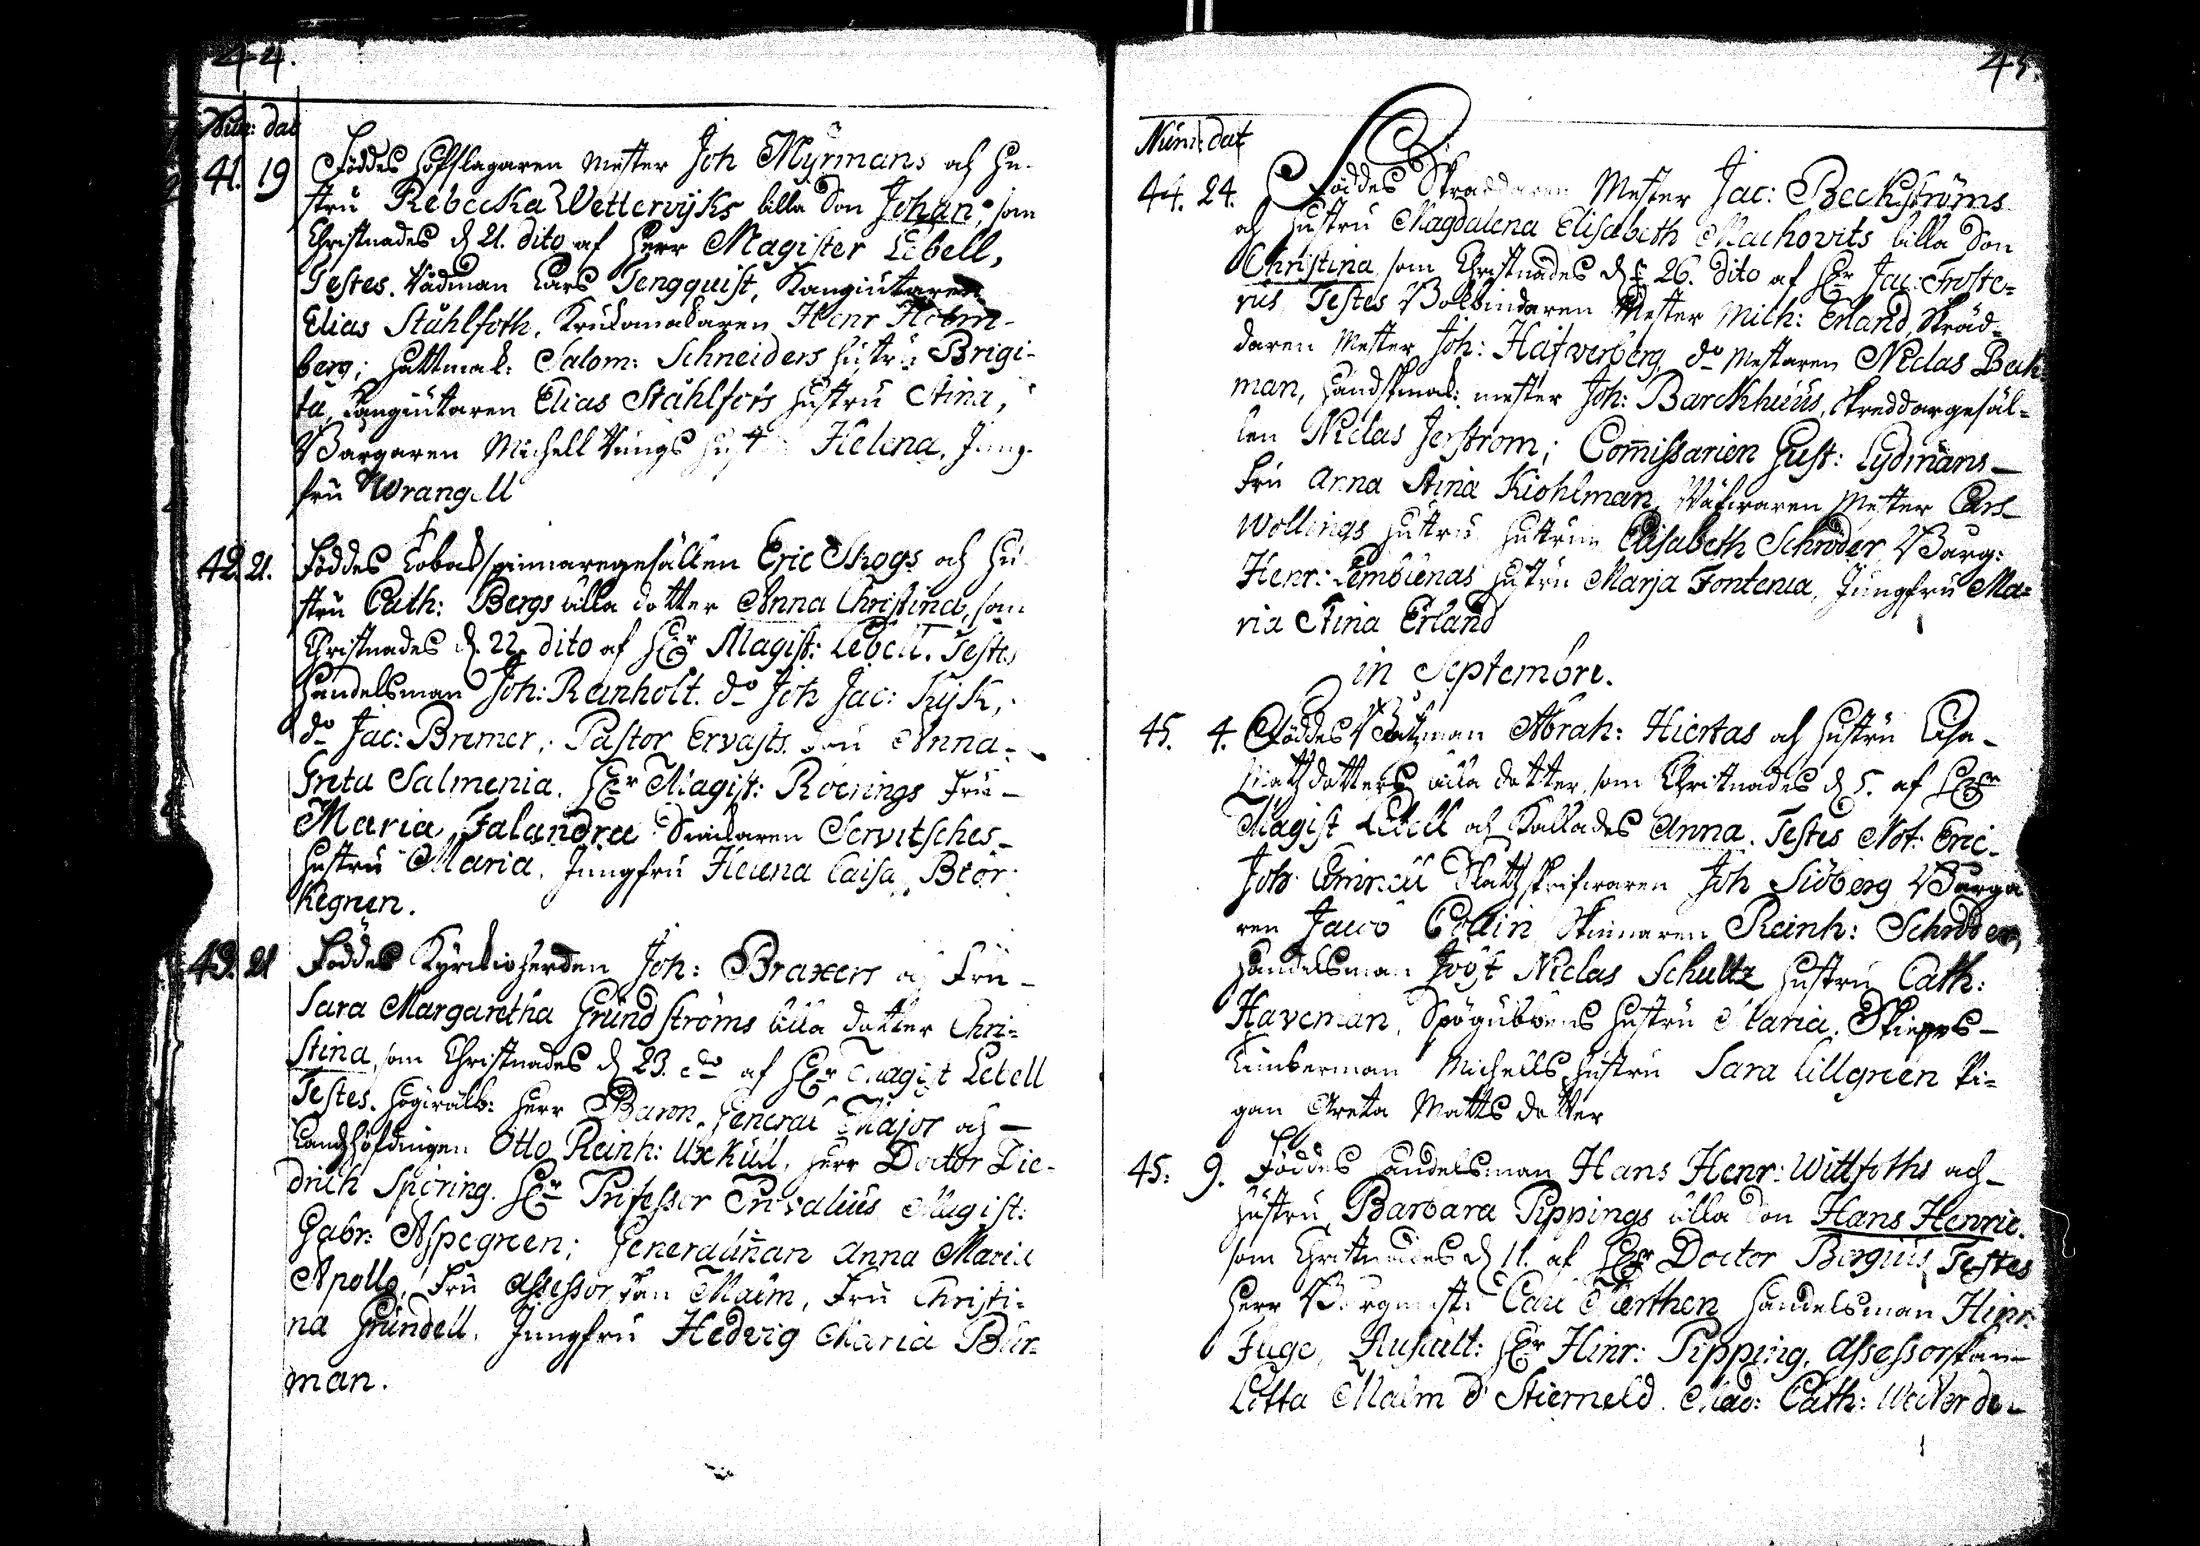 44.
Num: dat
41. 19 Föddes Hofslagaren Mester Joh Myrmans och Hu-
stru Rebecka Wetterwijks lilla Son Johan, som
Christnades d 21. dito af Herr Magister Lebell,
Testes. Rådman Lars Tengquist, Kangiutaren
Elias Ståhlfoth, Krukomakaren Henr Holm-
berg; Hattmak: Salom: Schneiders Hustru Brigi-
ta, Kangiutaren Elias Ståhlfots Hustru Stina,
Borgaren Michell Hust Helena, Jung-
fru Wrangell
42. 21. Föddes Tobaksspinnaregesällen Eric Skogs och Hu-
stru Cath: Bergs lilla dotter Anna Christina, som
Christnades d. 22. dito af Hr Magist: Lebell. Testes
Handelsman Joh: Reinholt. do Joh Jac: Kijk,
do Jac: Bremer, Pastor Ervasts Fru Anna-
Greta Salmenia. Hr Magist: Roerings Fru-
Maria Falandra Servitsches-
Hustru Maria. Jungfru Helena Caisa Biör
kegren.
43. 21 Föddes Kyrckioherden Joh: Braxers och Fru-
Sara Margaretha Grundströms lilla dotter Chri-
stina, som Christnades d 23. do af Hr Magist Lebell
Testes. Högwälb: Herr Baron, General Major och-
Landshöfdingen Otto Reinh: Uxküll, Herr Doctor Die-
drich Spöring. Hr Professor Magist:
Gabr: Aspegreen; Generalinnan Anna Maria
Apollo, Fru Assessor von Malm, Fru Christi-
na Grundell, Jungfru Hedvig Maria Bur-
man.
45.
Num: dat
44. 24. Föddes Skräddaren Mester Jac: Beckströms
och Hustru Magdalena Elisabeth Machovits lilla Don
Christina som Christnades d 26. dito af Hr Jac: Troste-
rus Testes Bokbindaren Mester Mich: Erland, Skräd-
daren Mester Joh: Hafverberg, do Mestaren Niclas Beck
man, Handskmak: mester Joh: Barckhuus, Skreddargesäl-
len Niclas Jerström; Commissarien Gust: Lydmans-
Fru Anna Stina Kiohlman, Mester Carl
Wollings Hustru Hustrun Elisabeth Schröder, Borg:
Henr: Hustru Marja Fontenia, Jungfru Ma-
ria Stina Erland
in Septembri.
45. 4. Föddes Abrah: Hiertas och Hustru Lisa-
Matzdotters lilla dotter, som Christnades d 5. af Hr
Magist Lebell och Kallades Anna. Testes Not: Eric-
Joh: Slattzskrifwaren Joh Siöberg Borga
ren Jacob Collin Skinnaren Reinh: Schröder,
Handelsman Joost Niclas Schultz Hustru Cath:
Haveman, Spögubbens Hustru Maria. Skieps-
timberman Michells Hustru Sara Lillgreen Pi-
gan Greta Matts dotter
45: 9. Föddes Handelsman Hans Henr: Wittfoths och-
Hustru Barbara Pippings lilla Son Hans Henric.
som Christnades d 11. af Hr Doctor Bergius, Testes
Herr Borgmest: Carl Merthen Handelsman Hinr:
Fuge, Hr Hinr: Pipping, Assessorskan
Litta Malm d Stierneld. Mad: Cath: